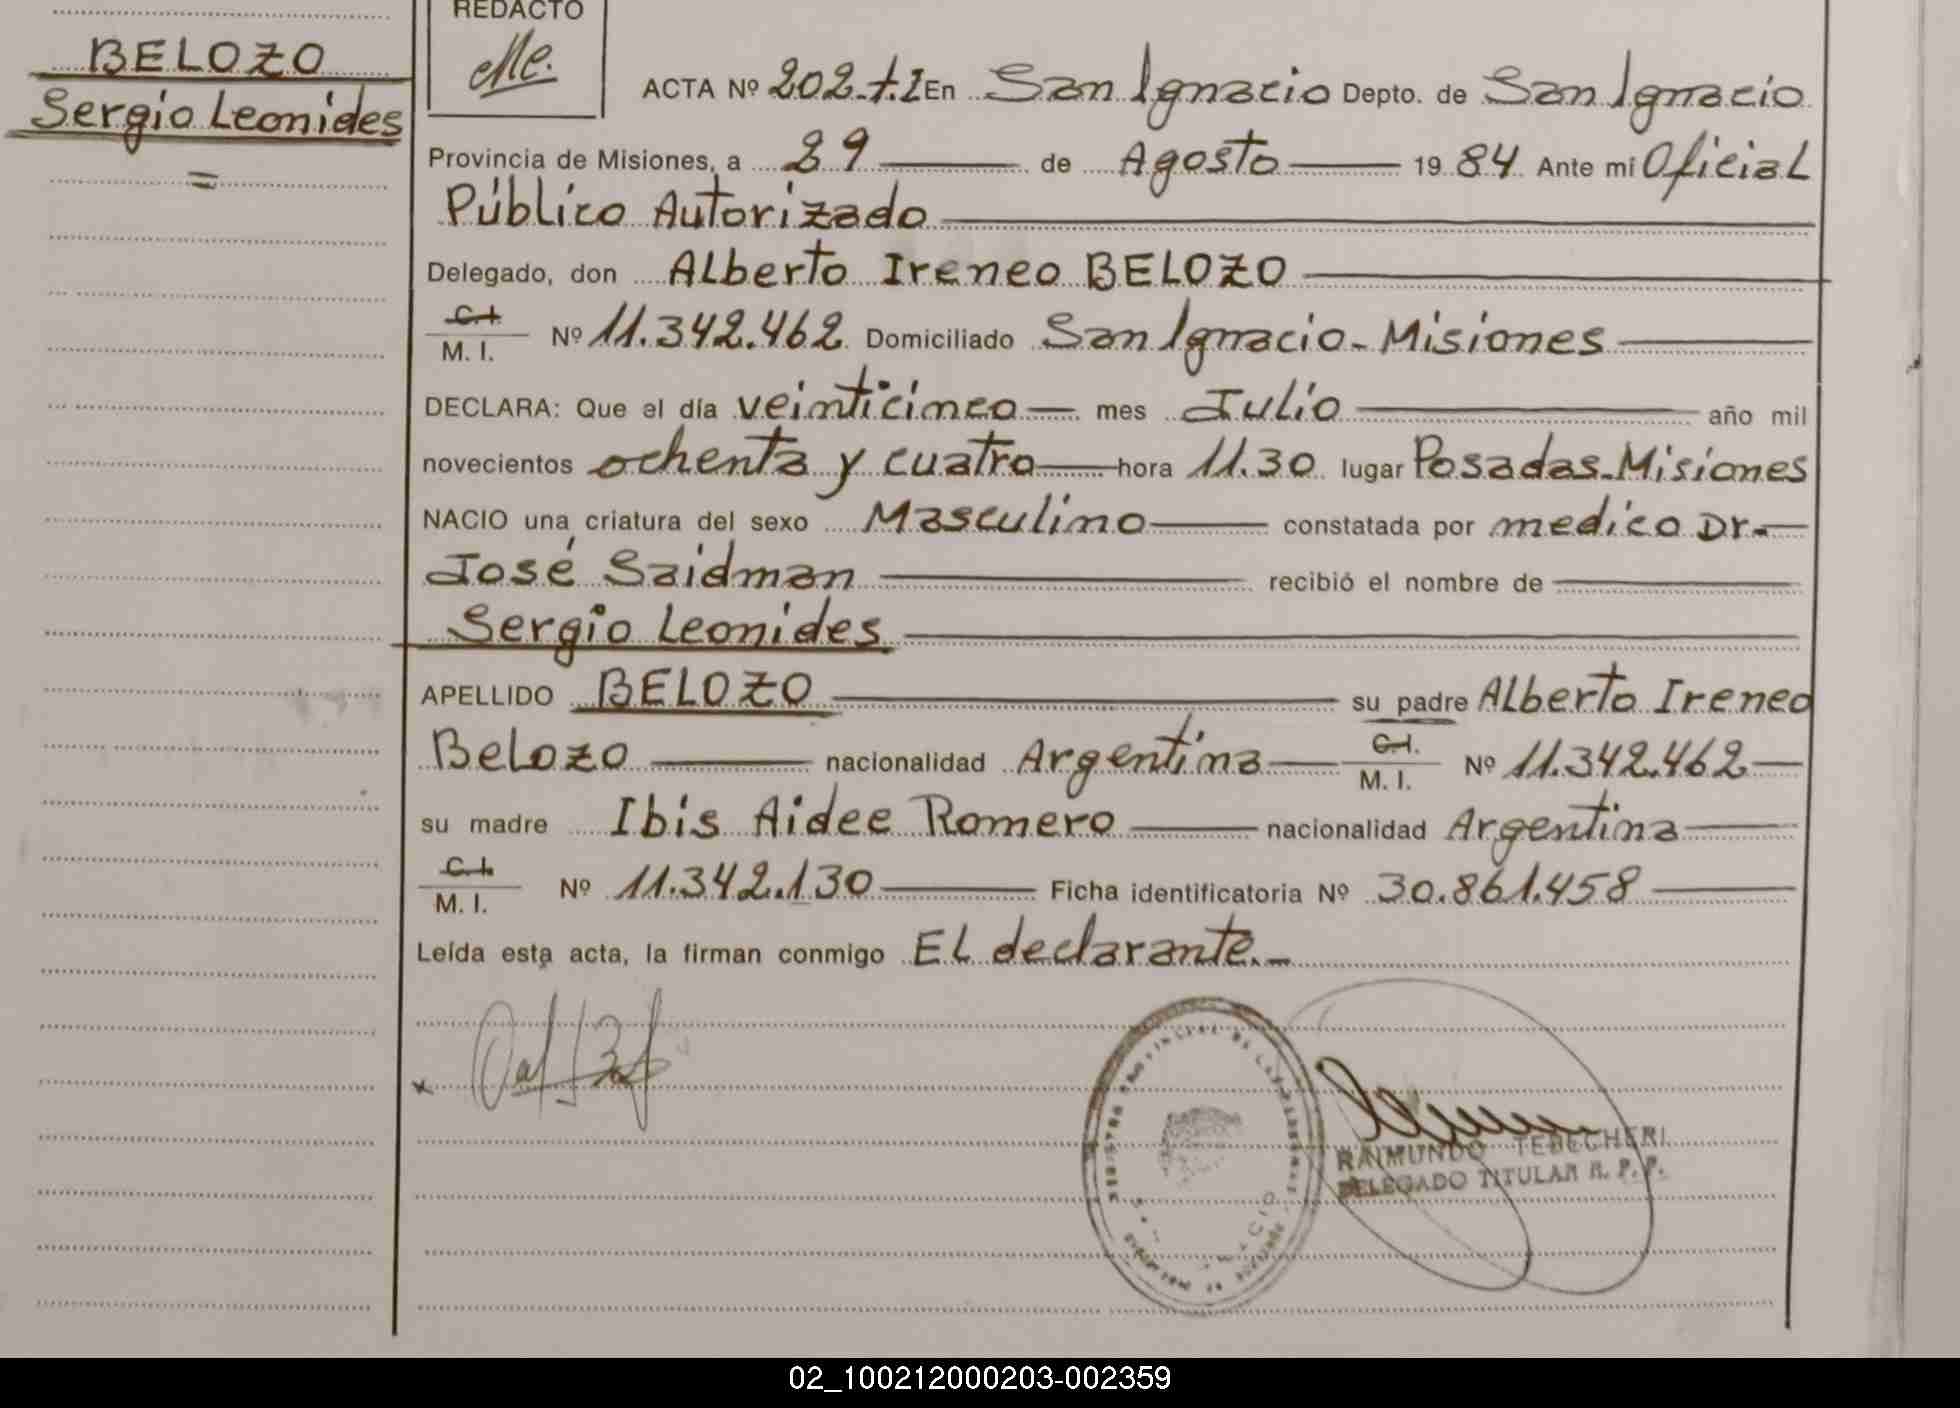 BELOZO
Sergio Leonides
=
REDACTO
ACTA Nº 202-t.I En San Ignacio Depto. de San Ignacio
Provincia de Misiones, a 29 de Agosto 1984 Ante mi Oficial
Público Autorizado
Delegado, don Alberto Ireneo BELOZO
C.I.
M. I. Nº 11.342.462 Domiciliado San Ignacio - Misiones
DECLARA: Que el día veinticinco mes Julio año mil
novecientos ochenta y cuatro hora 11.30 lugar Posadas-Misiones
NACIO una criatura del sexo Masculino constatada por medico Dr.-
José Saidman recibió el nombre de
Sergio Leonides
APELLIDO BELOZO su padre Alberto Ireneo
Belozo nacionalidad Argentina C.I. M. I. Nº 11.342.462
su madre Ibis Aidee Romero nacionalidad Argentina
C.I.
M. I. Nº 11.342.130 Ficha identificatoria Nº 30.861.458
Leída esta acta, la firman conmigo El declarante.-
x
RAIMUNDO TEBECHERI
DELEGADO TITULAR R. P. P.
02_100212000203-002359